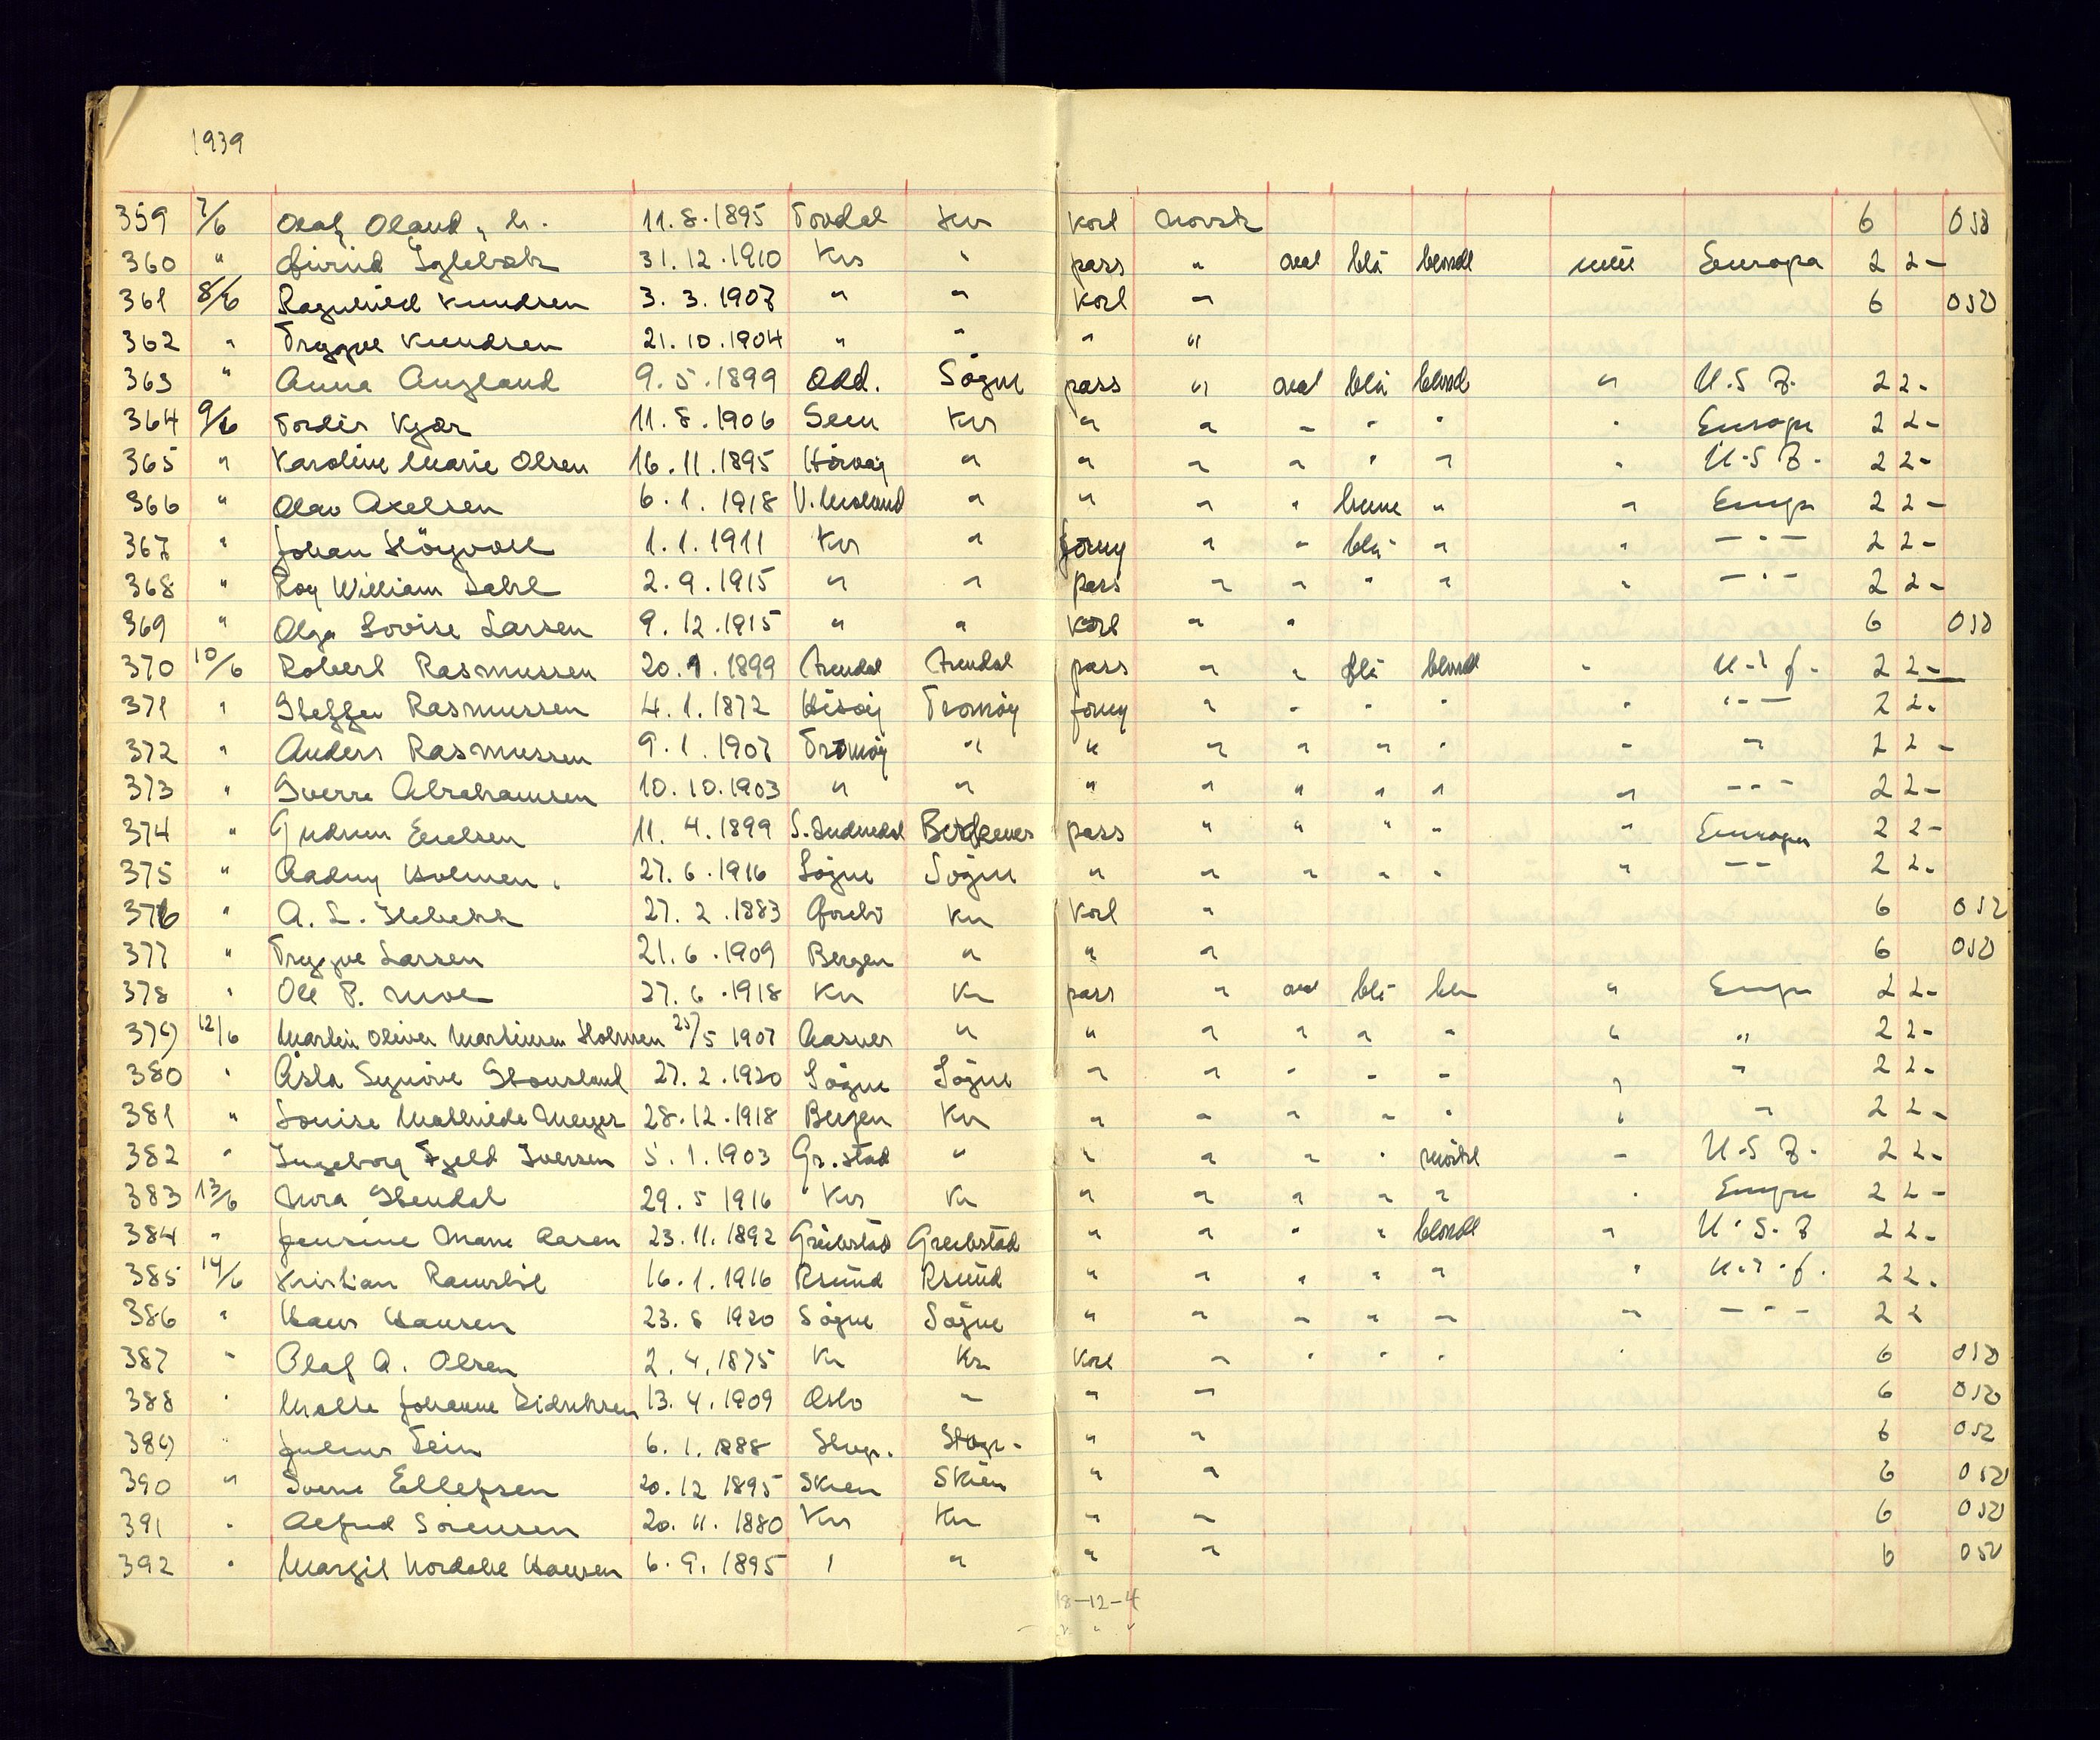 1939
359 7/6 Olaf Oland, 11.8.1895 Tovdal Krs Kort Norsk 6 050
360 " Eivind Iglebæk 31.12.1910 Krs " pass " oval blå blondt Europa 2 2-
361 8/6 Ragnhild Knudsen 3.3.1907 " " Kort " 6 050
362 " Trygve Knudsen 21.10.1904 " " " "
363 " Anna Augland 9.5.1899 Odd. Søgne pass " oval blå blond " U.S.A. 2 2-
364 9/6 Tordis Kjær 11.8.1906 Sem Krs " " " " " " Europa 2 2-
365 " Karoline Marie Olsen 16.11.1895 " " " " " " " U.S.A. 2 2-
366 " Olav Axelsen 6.1.1918 " " " " brune " " Europa 2 2-
367 " Johan Høyvoll 1.1.1911 Krs " forny " " blå " " -"- 2 2-
368 " Roy William Dahl 2.9.1915 " " pass " " " " " -"- 2 2-
369 " Olga Lovise Larsen 9.12.1915 " " Kort " " 6 050
370 10/6 Robert Rasmussen 20.9.1899 Arendal Arendal pass " " blå blondt " 2 2-
371 " Steffen Rasmussen 4.1.1872 Hisøy Tromøy forny " " " " " "-- 2 2-
372 " Anders Rasmussen 9.1.1907 Tromøy " " " " " " " " 2 2-
373 " Sverre Abrahamsen 10.10.1903 " " " " " " " " --- 2 2-
374 " Gudrun 11.4.1899 S. Audnedal pass " " " " " Europa 2 2-
375 " Aadny Holmen. 27.6.1916 Søgne Søgne " " " " " " -- 2 2-
376 " A. L. 27.2.1883 Kr Kort " 6 052
377 " Trygve Larsen 21.6.1909 Bergen " " " 6 050
378 " Ole P. Moe 27.6.1918 Kr Kr pass " oval blå " Europa 2 2-
379 12/6 Martin Oliver Martinsen Holmen 25/5 1907 " " " " " " " " 2 2-
380 " Åsta Synøve Stousland 27.2.1920 Søgne Søgne " " " " " " " 2 2-
381 " Louise Mathilde Meyer 28.12.1918 Bergen Kr " " " " " " " 2 2-
382 " Ingeborg Fjeld Iversen 5.1.1903 Gr.stad " " " " " mørkt " U.S.A. 2 2-
383 13/6 Nora Stendal 29.5 1916 Krs Kr " " " " " " Europa 2 2-
384 " Jensine Marie Aasen 23.11.1892 Greibstad Greibstad " " " " blondt " U.S.A 2 2-
385 14/6 Kristian 16.1.1916 Rsund Rsund " " " " " " 2 2.
386 " Hans Hansen 23.8 1920 Søgne Søgne " " " " " " --- 2 2
387 " Olaf A. Olsen 2.4.1875 Kr Kr Kort " " " " " 6 050
388 " Johanne Didriksen 13.4.1909 Oslo " " " 6 050
389 " Julius 6.1.1888 " " 6 052
390 " Sverre Ellefsen 20.12 1895 Skien Skien " " 6 050
391 " Alfred Sørensen 20.11.1880 Krs Kr " " 6 050
392 " Margit Nordahl Hansen 6.9.1895 " " " " 6 050
18-12-4